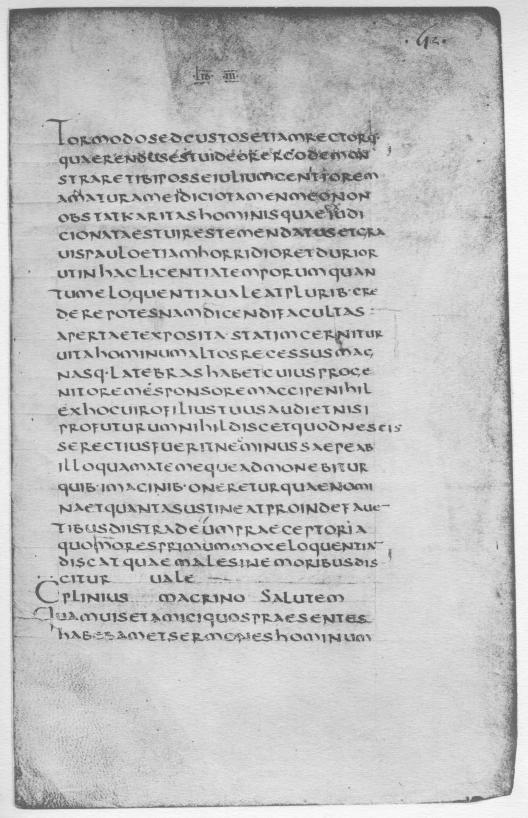 .42.
LIB · III
TORMODOSEDCUSTOSETIAMRECTORQ·
QUAERENDUSESTUIDEORERGODEMON
STRARETIBIPOSSEIULIUMGENITOREM
AMATURAMEIUDICIOTAMENMEONON
OBSTATKARITASHOMINISQUAEIUDI
CIONATAESTUIRESTEMENDATUSETGRA
UISPAULOETIAMHORRIDIORETDURIOR
UTINHACLICENTIATEMPORUMQUAN
TUMELOQUENTIAUALEATPLURIB·CRE
DEREPOTESNAMDICENDIFACULTAS
APERTAETEXPOSITA·STATIMCERNITUR
UITAHOMINUMALTOSRECESSUSMAG
NASQ·LATEBRASHABETCUIUSPROGE
NITOREMESPONSOREMACCIPENIHIL
EXHOCUIROFILIUSTUUSAUDIETNISI
PROFUTURUMNIHILDISCETQUODNESCIS
SERECTIUSFUERITNEMINUSSAEPEAB
ILLOQUAMATEMEQUEADMONEBITUR
QUIB·IMAGINIB·ONERETURQUAENOMI
NAETQUANTASUSTINEATPROINDEFAUE
TIBUSDIISTRADEEUMPRAECEPTORIA
QUOMORESPRIMUMMOXELOQUENTIA
DISCATQUAEMALESINEMORIBUSDIS
CITUR UALE
C PLINIUS MACRINO SALUTEM
QUAMUISETAMICIQUOSPRAESENTES
HABEBAMETSERMONESHOMINUM